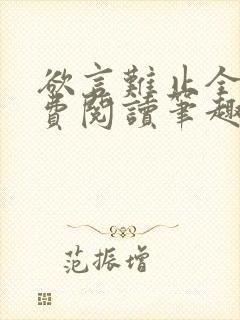 欲言難止全
費閱讀筆趣
范振增